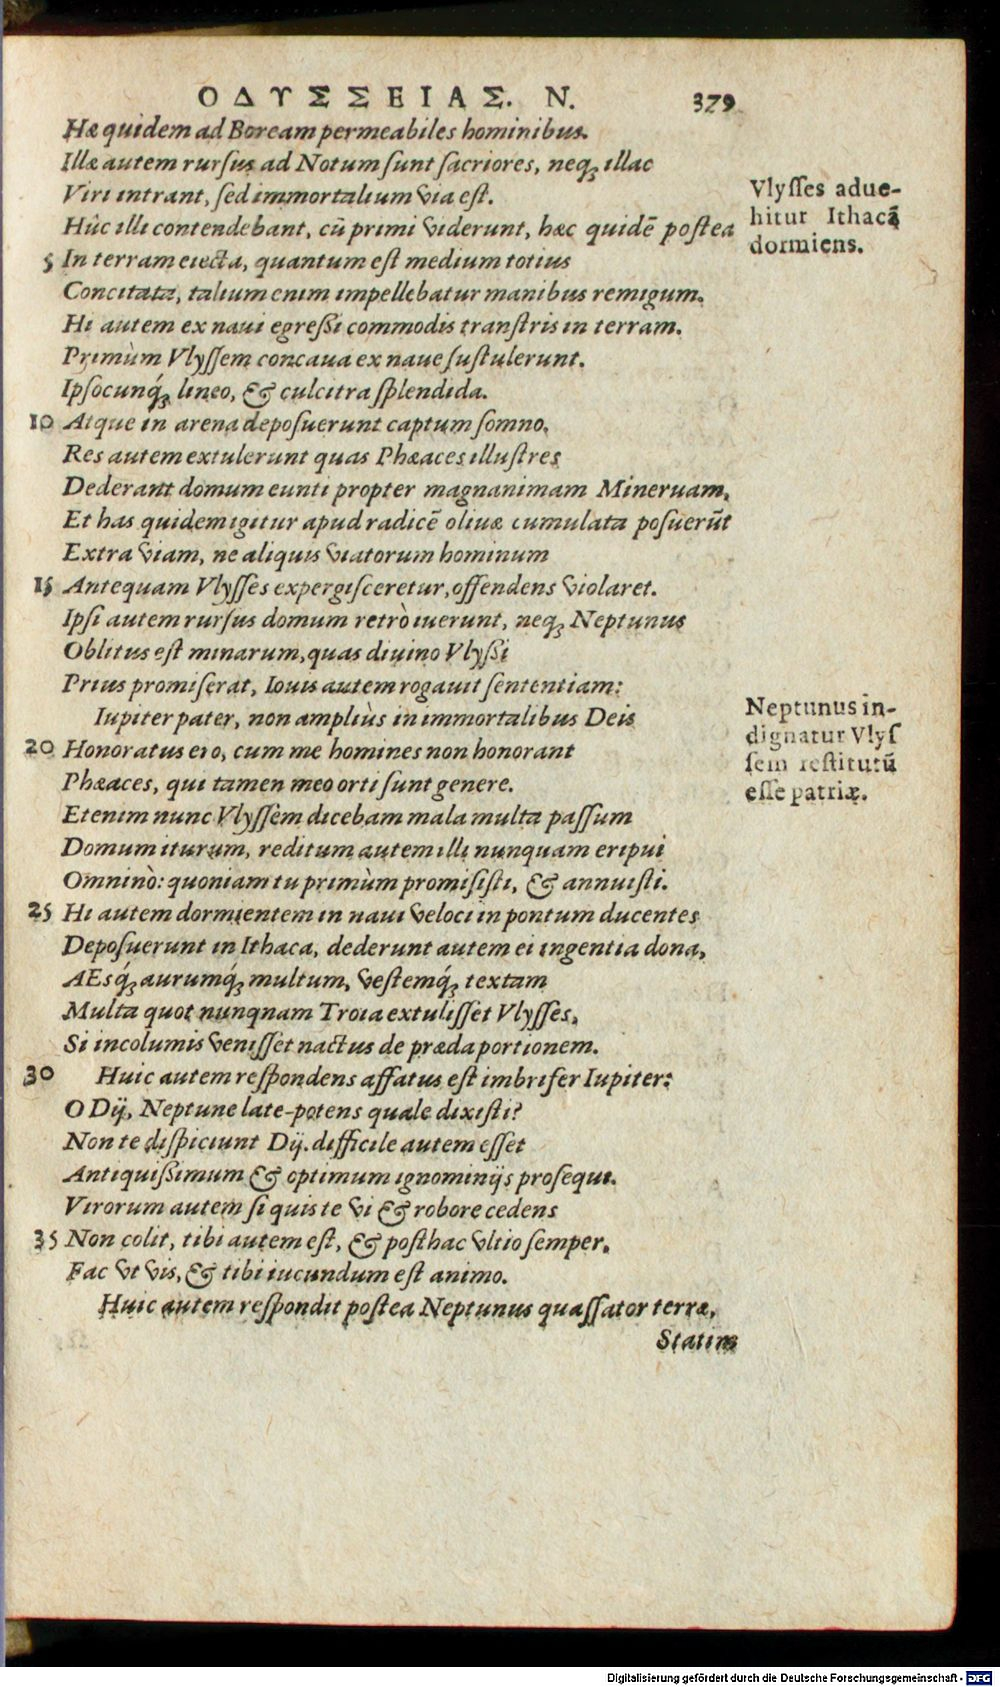 ΟΔΥΣΣΕΙΑΣ. Ν. 379
Hæ quidem ad Boream permeabiles hominibus.
Illæ autem rursus ad Notum sunt sacriores, neq; illac
Viri intrant, sed immortalium via est.
Hûc illi contendebant, cū primi viderunt, hæc quidē postea
Vlysses adue-
hitur Ithacā
dormiens.
5 In terram eiecta, quantum est medium totius
Concitata, talium enim impellebatur manibus remigum.
Hi autem ex naui egressi commodis transtris in terram.
Primùm Vlyssem concaua ex naue sustulerunt.
Ipsocunq́; lineo, & culcitra splendida.
10 Atque in arena deposuerunt captum somno.
Res autem extulerunt quas Phæaces illustres
Dederant domum eunti propter magnanimam Mineruam,
Et has quidem igitur apud radicē oliuæ cumulata posuerūt
Extra viam, ne aliquis viatorum hominum
15 Antequam Vlysses expergisceretur, offendens violaret.
Ipsi autem rursus domum retrò iuerunt, neq; Neptunus
Oblitus est minarum, quas diuino Vlyssi
Prius promiserat, Iouis autem rogauit sententiam:
Iupiter pater, non ampliùs in immortalibus Deis
Neptunus in-
dignatur Vlys
sem restitutū
esse patriæ.
20 Honoratus ero, cum me homines non honorant
Phæaces, qui tamen meo orti sunt genere.
Etenim nunc Vlyssem dicebam mala multa passum
Domum iturum, reditum autem illi nunquam eripui
Omninò: quoniam tu primùm promisisti, & annuisti.
25 Hi autem dormientem in naui veloci in pontum ducentes
Deposuerunt in Ithaca, dederunt autem ei ingentia dona,
AEsq́; aurumq́; multum, vestemq́; textam
Multa quot nunqnam Troia extulisset Vlysses,
Si incolumis venisset nactus de præda portionem.
30 Huic autem respondens affatus est imbrifer Iupiter:
O Dij, Neptune late-potens quale dixisti?
Non te dispiciunt Dij. difficile autem esset
Antiquissimum & optimum ignominijs prosequi.
Virorum autem si quis te vi & robore cedens
35 Non colit, tibi autem est, & posthac vltio semper.
Fac vt vis, & tibi iucundum est animo.
Huic autem respondit postea Neptunus quassator terræ,
Statim
Digitalisierung gefördert durch die Deutsche Forschungsgemeinschaft - DFG